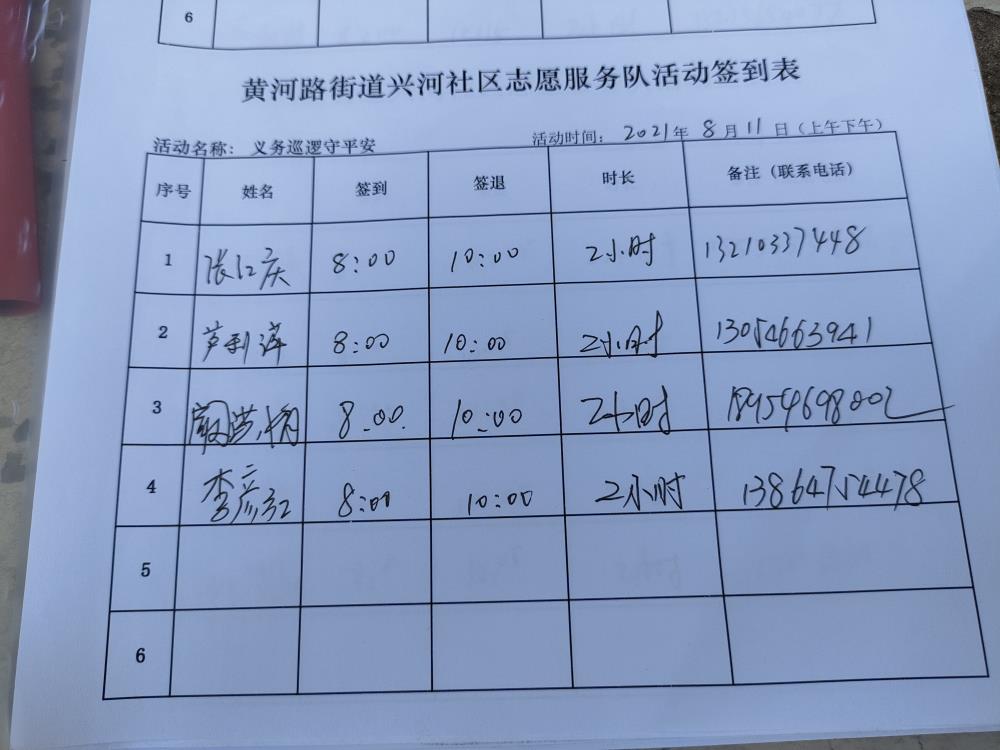 6
黄河路街道兴河社区志愿服务队活动签到表
活动名称： 义务巡逻守平安 活动时间： 2021年 8月11日（上午下午）
序号 姓名 签到 签退 时长 备注（联系电话）
1 张江庆 8:00 10:00 2小时 13210337448
2 芦利萍 8:00 10:00 2小时 13054663941
3 8:00 10:00 2小时 18954698002
4 李彦红 8:00 10:00 2小时 13864754478
5
6